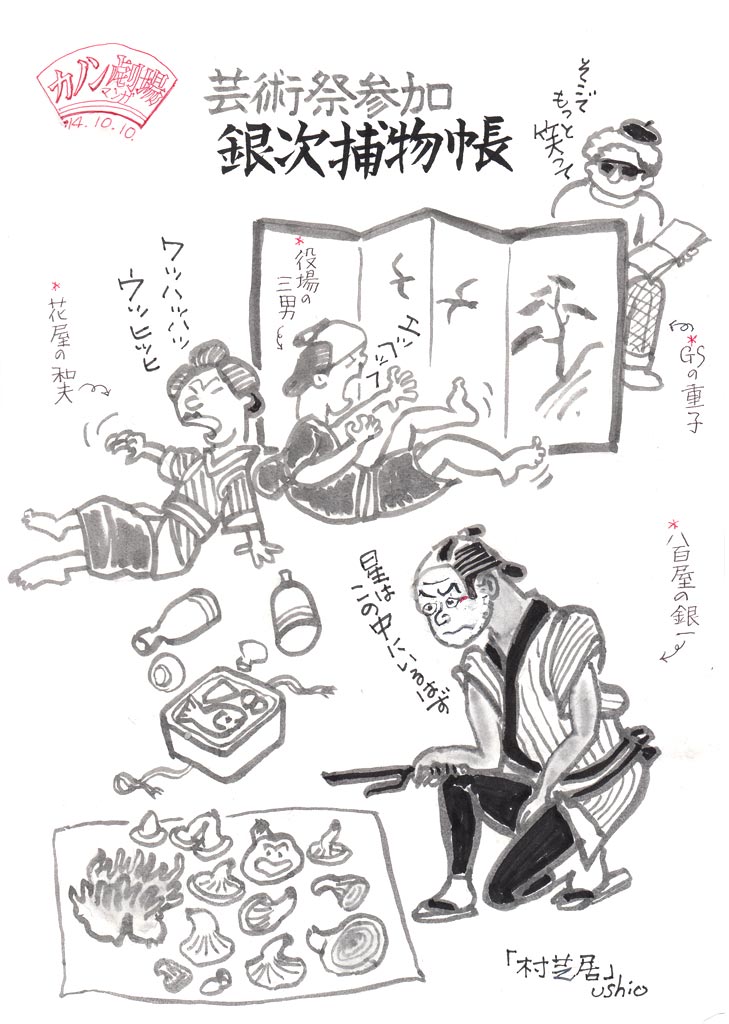 カノン劇場
マンガ
'14.10.10.
芸術祭参加
銀次捕物帳
そこで
もっと
笑って
*GSの重子
*役場の
三男
エッフェッフ
ワッハッハッ
ウッヒッヒ
*花屋の和夫
*八百屋の銀一
星は
この中にいるなぁ
「村芝居」
ushio